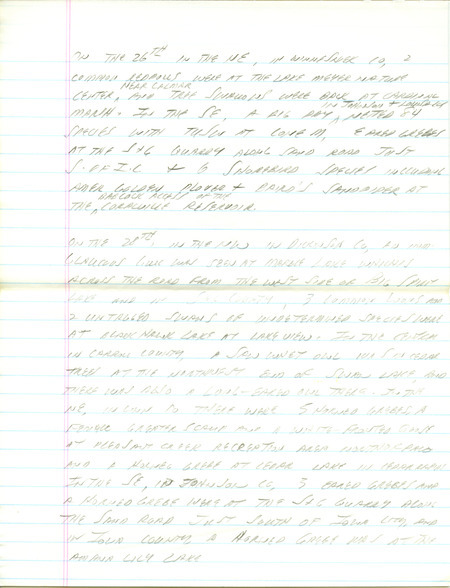 ON THE 26TH IN THE NE, IN WINNESHIEK CO, 2
COMMON REDPOLLS WERE AT THE LAKE MEYER NATURE
NEAR CALMAR
CENTER, AND THE SWANS WERE BACK AT CARDINAL
IN JOHNSON + LOUISA CO
MARSH. IN THE SE, A BIG DAY NETTED 84
SPECIES WITH AT CONE M, EARED GREBES
AT THE S+G QUARRY ALONG SAND ROAD JUST
S. OF I.C. + 6 SHOREBIRD SPECIES INCLUDING
AMER. GOLDEN PLOVER + BAIRD'S SANDPIPER AT
BABCOCK ACCESS OF THE
THE CORALVILLE RESERVOIR.
ON THE 28TH, IN THE NW IN DICKINSON CO, AN
LOON WAS SEEN AT LAKE
ACROSS THE ROAD FROM THE WEST SIDE OF BIG SPIRIT
LAKE AND IN COUNTY, 3 COMMON LOONS AND
2 UNTAGGED SWANS OF UNDETERMINED SPECIES WERE
AT BLACK HAWK LAKE AT LAKEVIEW. IN THE
IN CARROLL COUNTY A SAW WHET OWL WAS IN CEDAR
TREES AT THE NORTHWEST END OF SWAN LAKE, AND
THERE WAS ALSO A LONG-EARED OWL THERE. IN THE
NE, IN LINN CO THERE WERE 5 HORNED GREBES A
FEMALE GREATER SCAUP AND A WHITE-FRONTED GOOSE
AT PLEASANT CREEK RECREATION AREA
AND A HORNED GREBE AT CEDAR LAKE IN CEDAR RAPIDS
IN THE SE, IN JOHNSON CO, 3 EARED GREBES AND
A HORNED GREBE WERE AT THE S+G QUARRY ALONG
THE SAND ROAD JUST SOUTH OF IOWA CITY, AND
IN IOWA COUNTY, A HORNED GREBE WAS AT THE
AMANA LILY LAKE